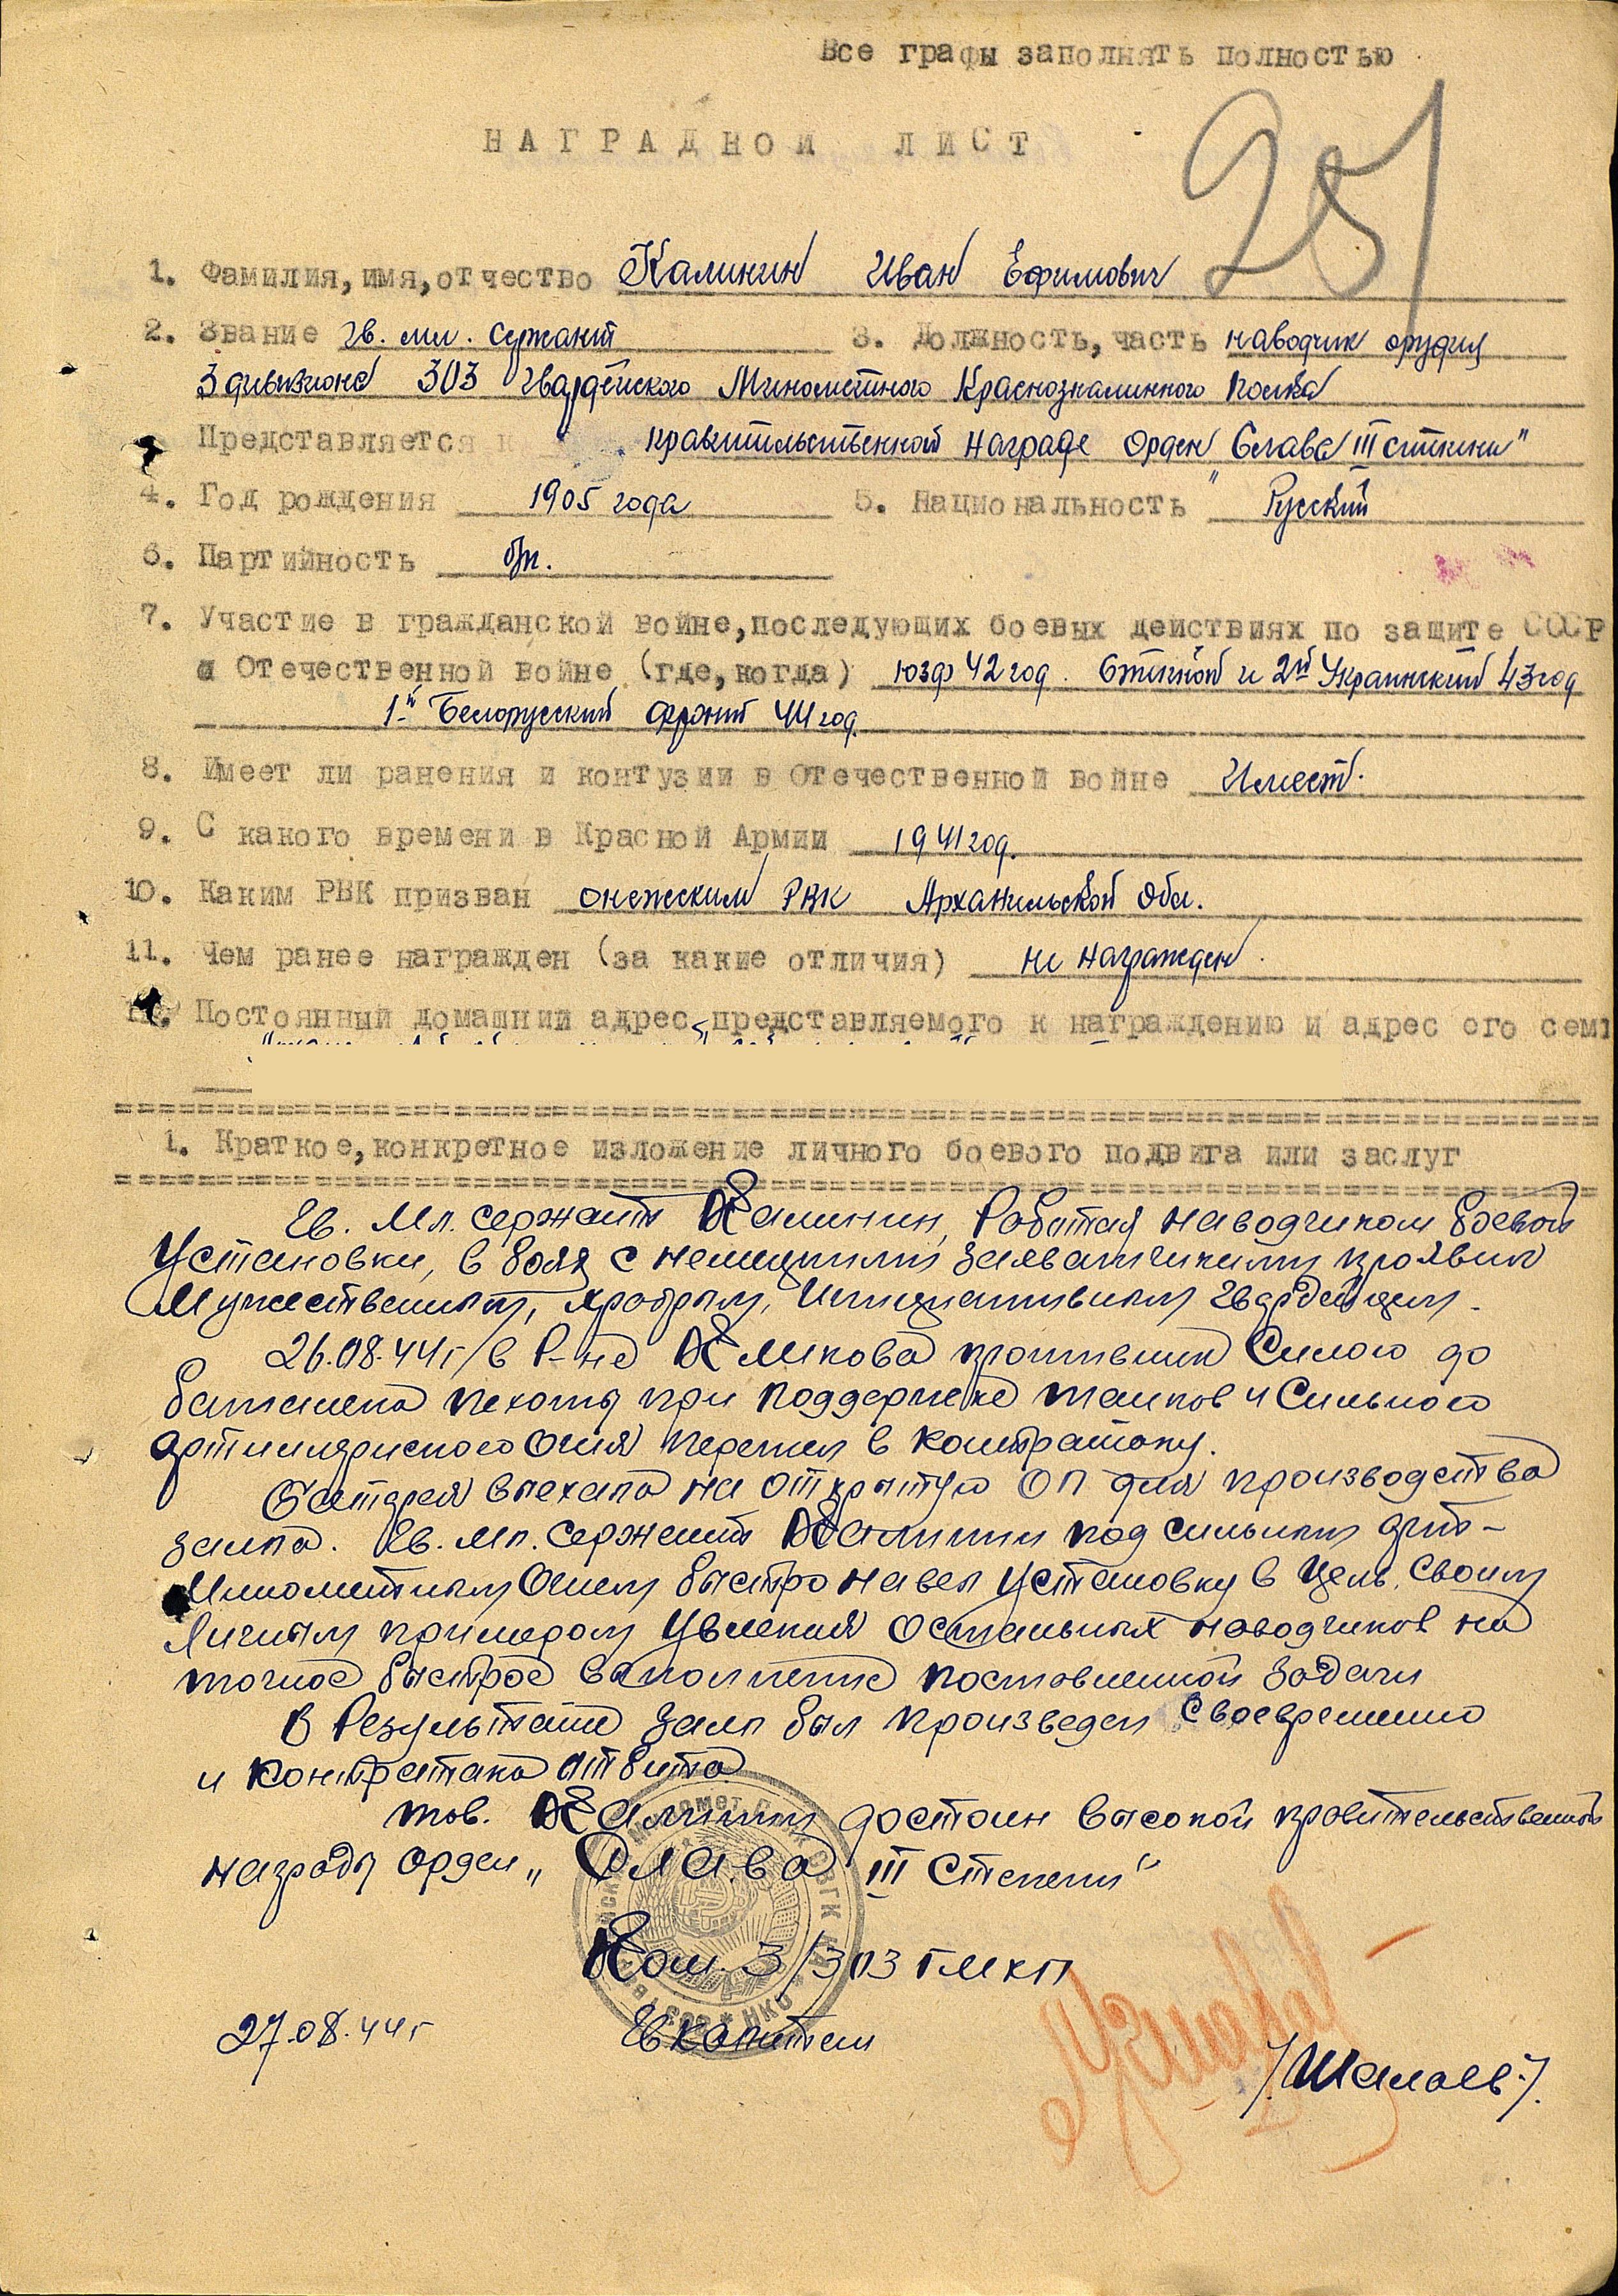 Все графы заполнять полностью
НАГРАДНОЙ ЛИСТ
251
1. Фамилия, имя, отчество Калинин Иван Ефимович
2. Звание гв. мл. сержант 3. Должность, часть наводчик орудия
3 дивизиона 303 Гвардейского Минометного Краснознаменного полка
Представляется к правительственной награде Орден "Слава III степени"
4. Год рождения 1905 года 5. Национальность Русский
6. Партийность б/п.
7. Участие в гражданской войне, последующих боевых действиях по защите СССР
и Отечественной войне (где, когда) ЮЗФ 42 год. Степной и 2й Украинский 43 год
1-й Белорусский фронт 44 год.
8. Имеет ли ранения и контузии в Отечественной войне Имеет.
9. С какого времени в Красной Армии 1941 год.
10. Каким РВК призван Онежским РВК Архангельской Обл.
11. Чем ранее награжден (за какие отличия) не награжден.
12. Постоянный домашний адрес представляемого к награждению и адрес его сем
1. Краткое, конкретное изложение личного боевого подвига или заслуг
Гв. Мл. Сержант Калинин, Работая наводчиком боевой
Установки, в боях с немецкими захватчиками проявил
Мужественным, храбрым, Инициативным гвардейцем.
26.08.44 г в Р-не противник Силою до
батальона пехоты при поддержке танков и Сильного
артиллерийского Огня перешел в контратаку.
Батарея выехала на открытую ОП для производства
залпа. Гв. Мл. Сержант Калинин под сильным арт-
Минометным Огнем быстро навел Установку в Цель, Своим
Личным примером Увлекая Остальных наводчиков на
точное быстрое выполнение поставленной Задачи
В Результате залп был произведен Своевременно
и контратака отбита
тов. Калинин достоин высокой правительственной
награды орден „Слава III Степени"
Ком. 3/303 ГМКП
27.08.44 г Гв Капитан
/Шалаев/.